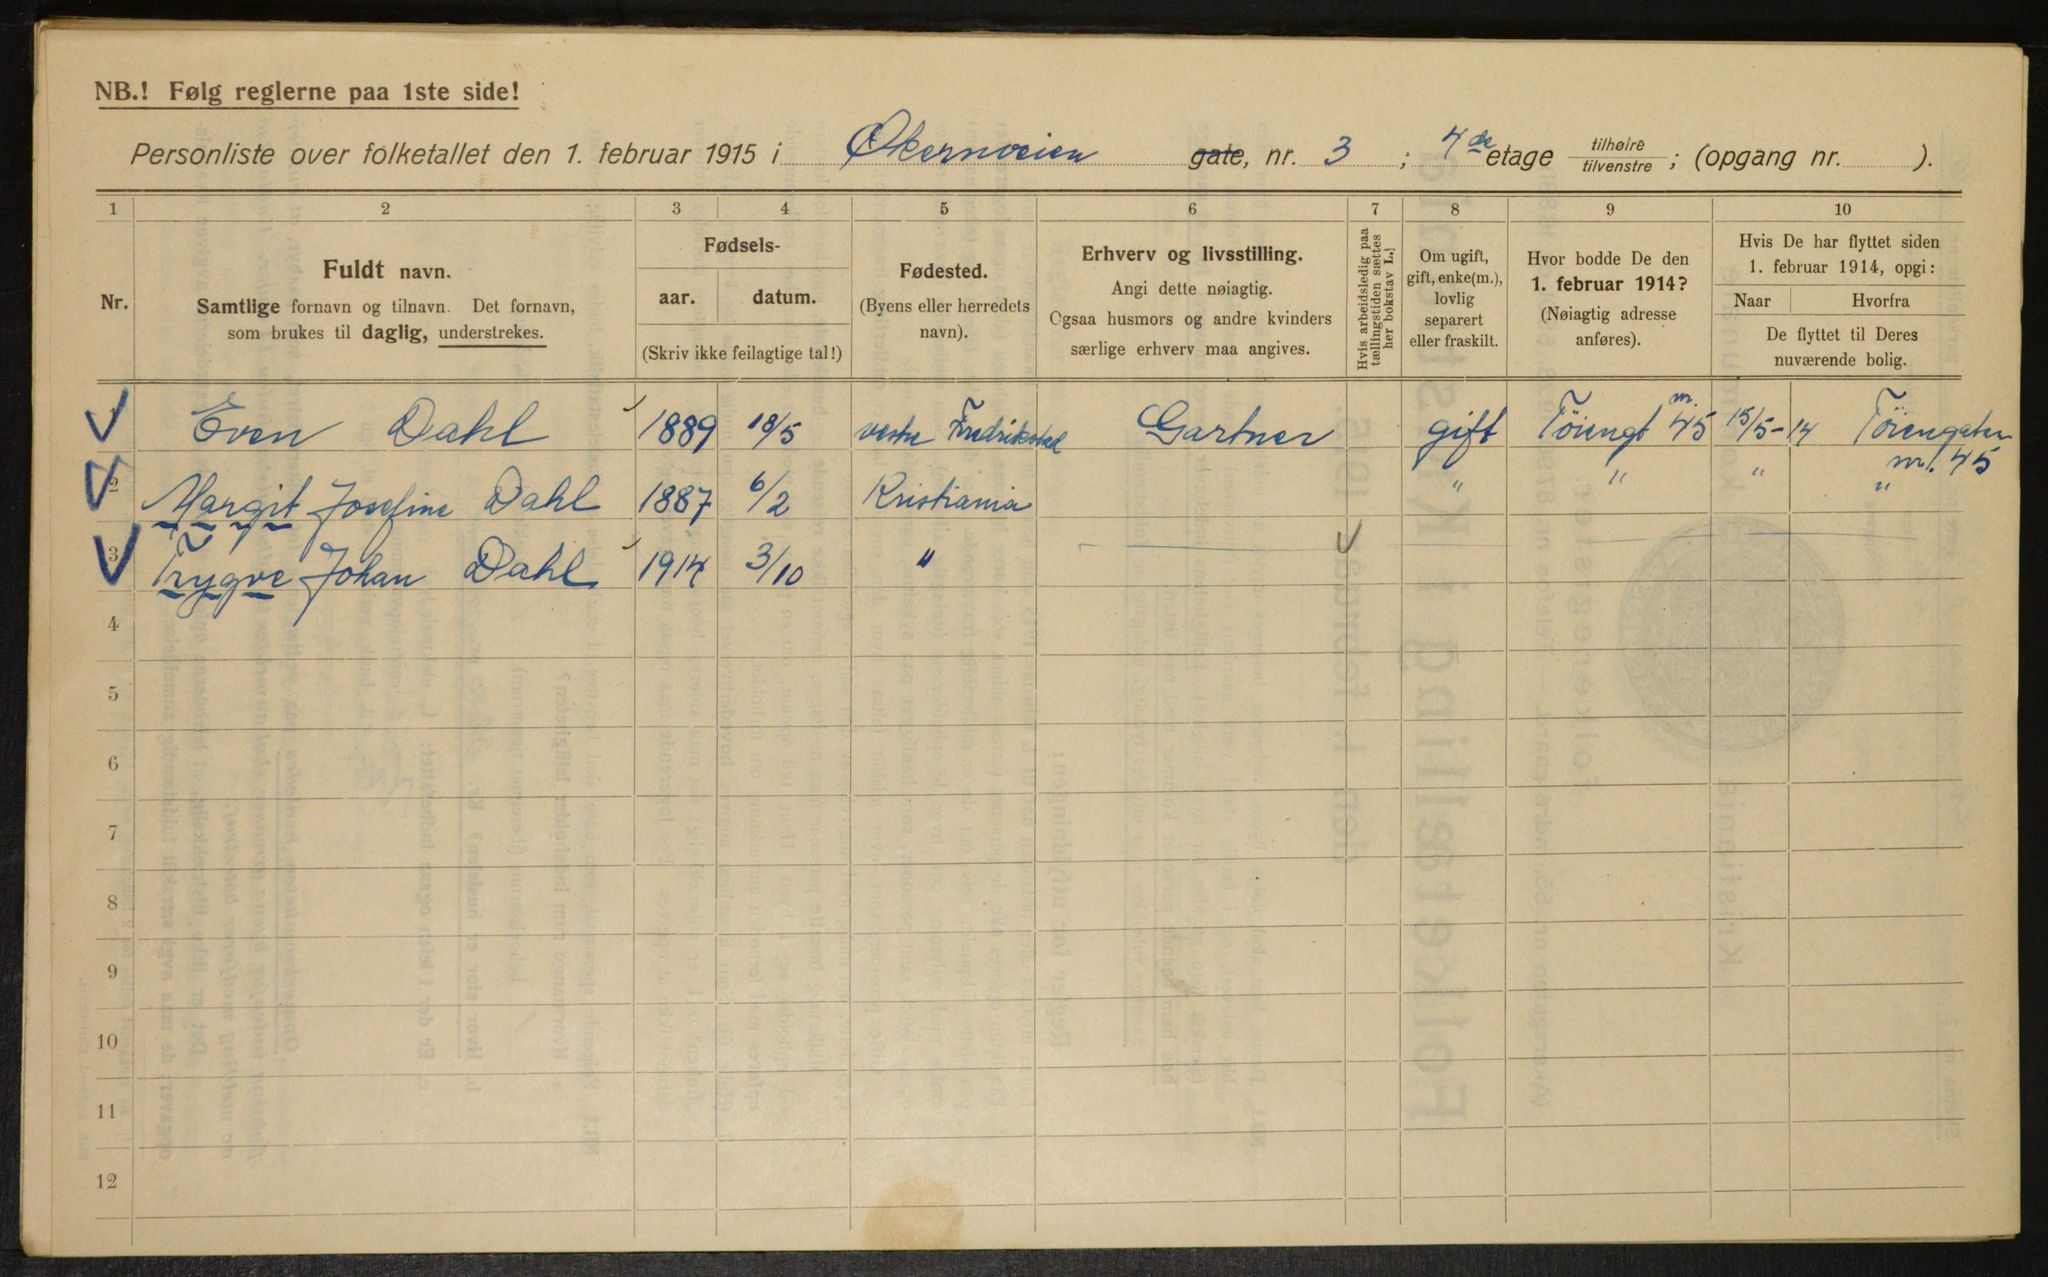 NB.! Følg reglerne paa 1ste side!
Personliste over folketallet den 1. februar 1915 i Økernveien gate, nr. 3 ; 4de etage tilhøire / tilvenstre ; (opgang nr. ).
1 2 3 4 5 6 7 8 9 10
Nr.
Fuldt navn.
Samtlige fornavn og tilnavn. Det fornavn,
som brukes til daglig, understrekes.
Fødsels-
aar. datum.
(Skriv ikke feilagtige tal!)
Fødested.
(Byens eller herredets
navn).
Erhverv og livsstilling.
Angi dette nøiagtig.
Ogsaa husmors og andre kvinders
særlige erhverv maa angives.
Hvis arbeidsledig paa
tællingstiden sættes
her bokstav L.!
Om ugift,
gift, enke(m.),
lovlig
separert
eller fraskilt.
Hvor bodde De den
1. februar 1914?
(Nøiagtig adresse
anføres).
Hvis De har flyttet siden
1. februar 1914, opgi:
Naar Hvorfra
De flyttet til Deres
nuværende bolig.
1 Even Dahl 1889 18/5 vestre Fredrikstad Gartner gift Töiengt nr. 45 15/5-14 Töiengaten
nr. 45
2 Margit Josefine Dahl 1887 6/2 Kristiania " " " "
3 Trygve Johan Dahl 1914 3/10 "
4
5
6
7
8
9
10
11
12